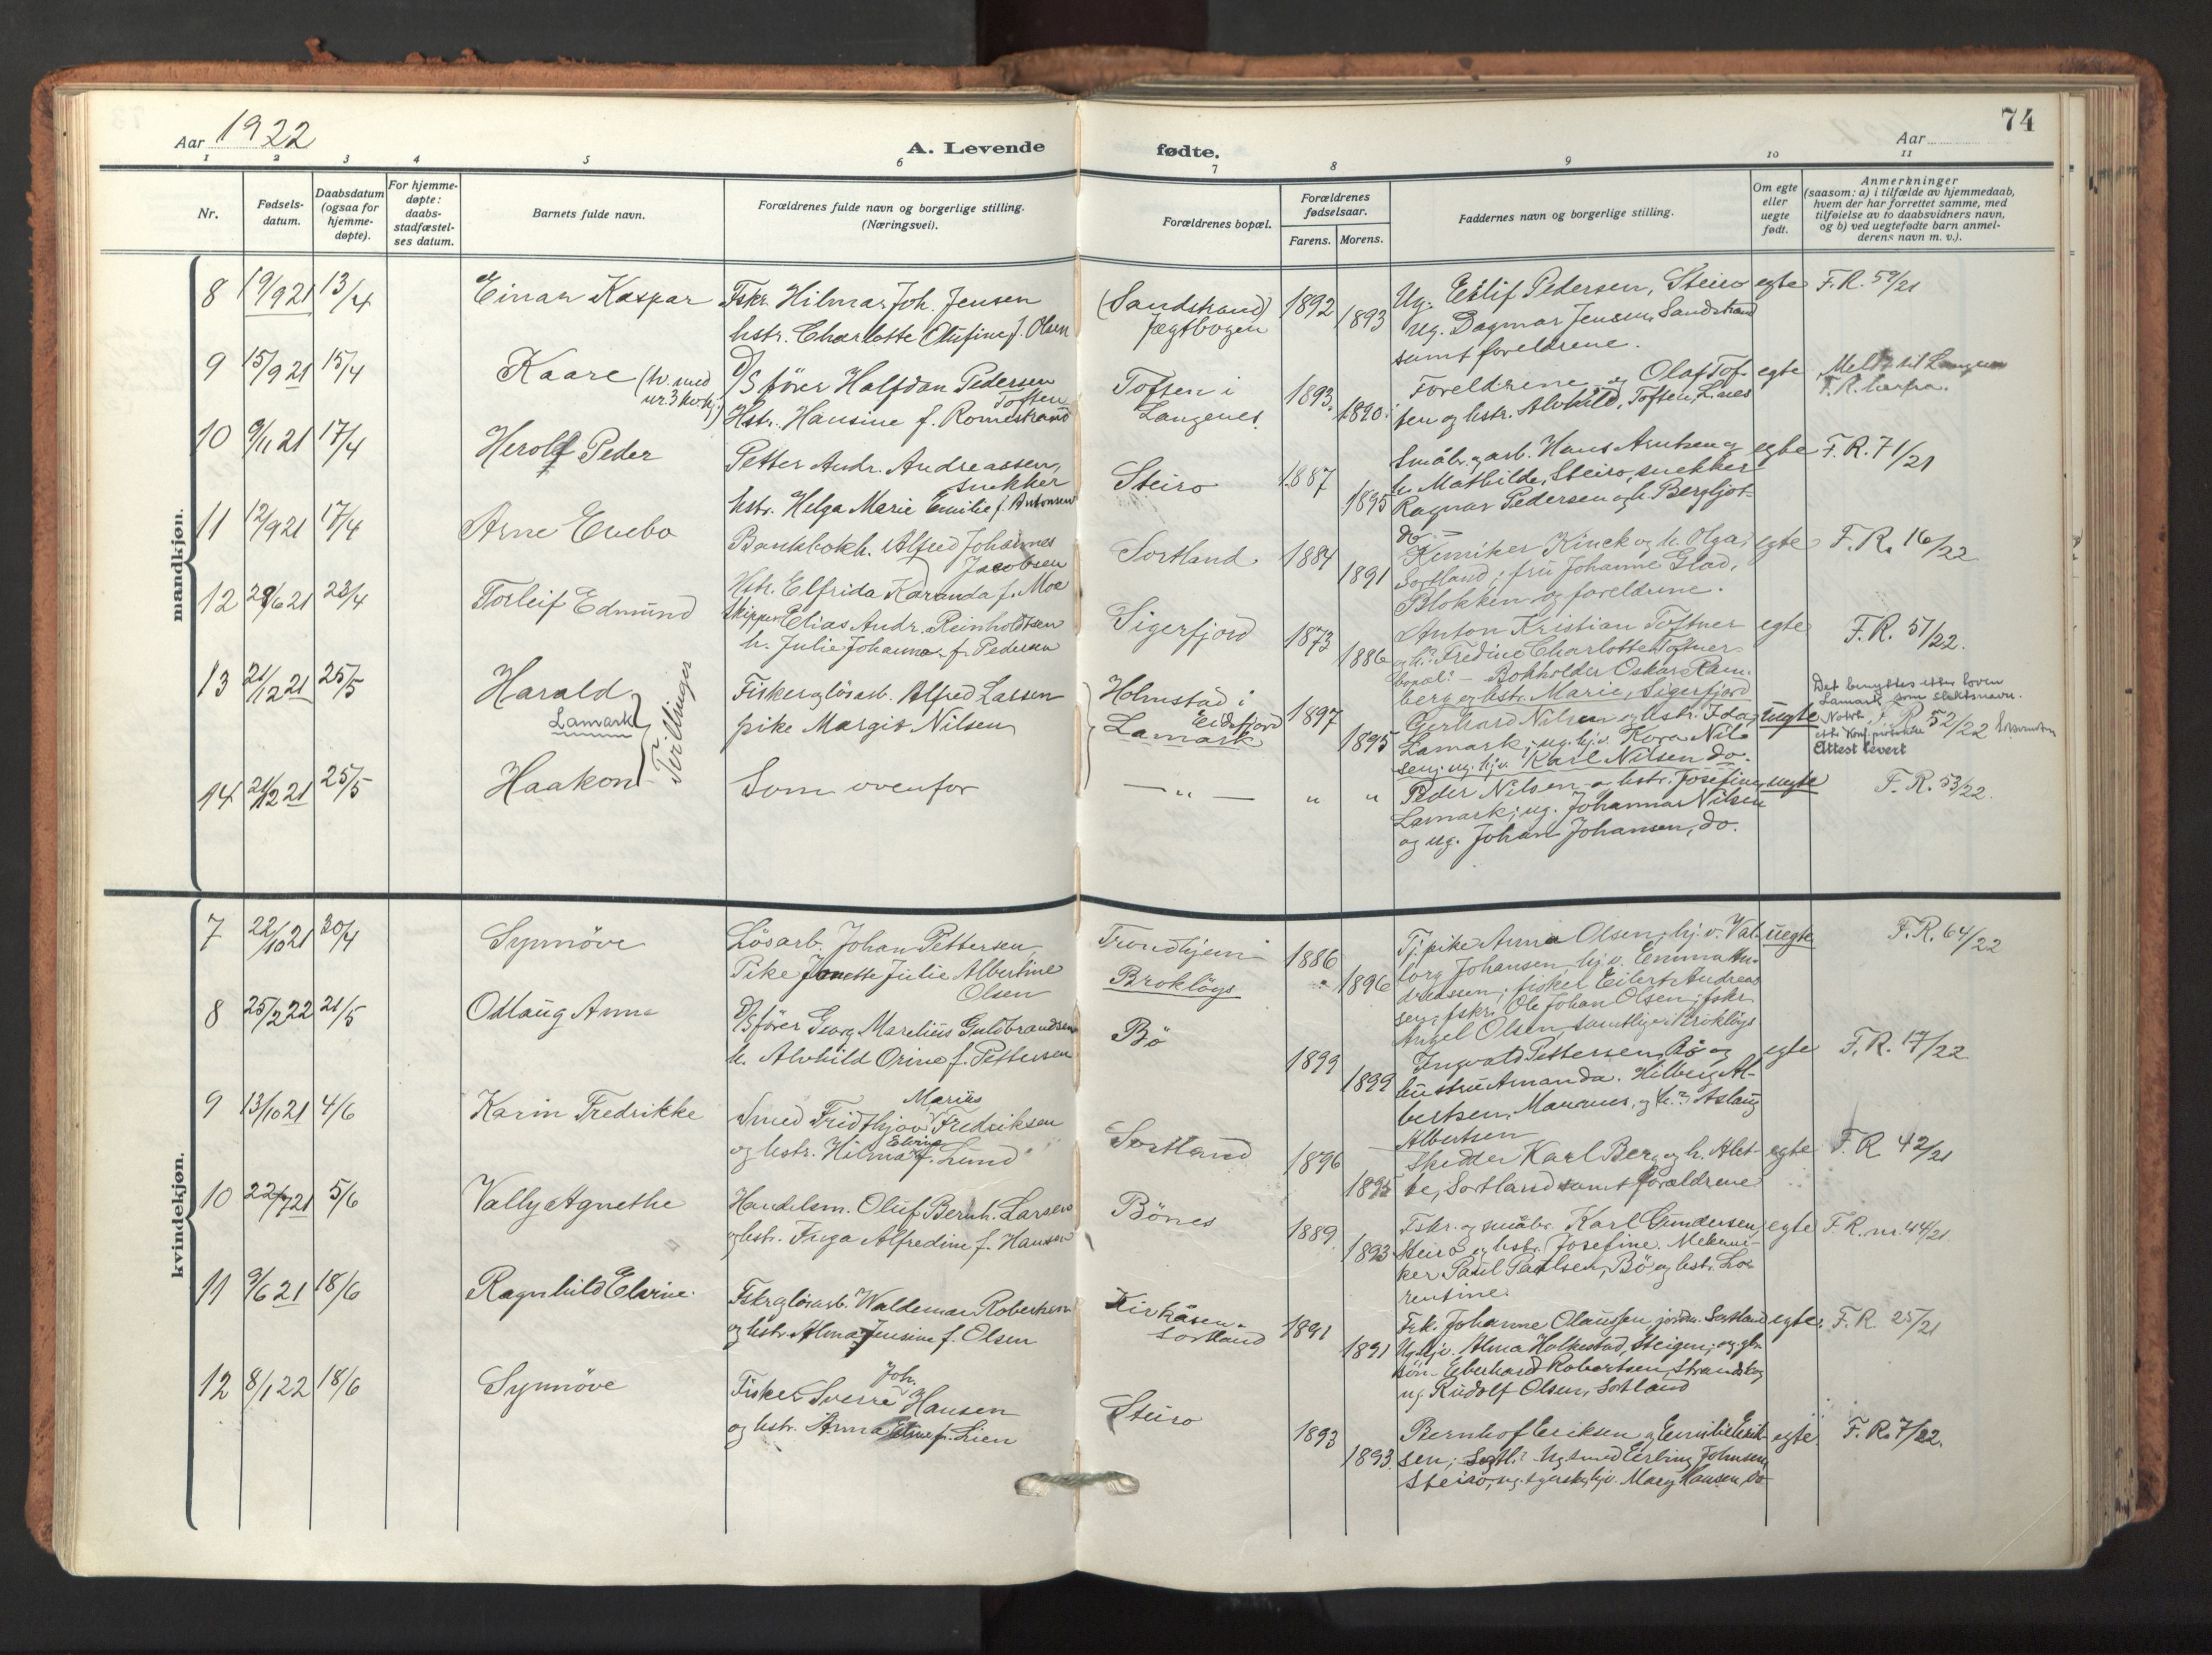 74
Aar 1922
A. Levende fødte.
Aar
1 2 3 4 5 6 7 8 9 10 11
Nr.
Fødsels-
datum.
Daabsdatum
(ogsaa for
hjemme-
døpte).
For hjemme-
døpte:
daabs-
stadfæstel-
ses datum.
Barnets fulde navn.
Forældrenes fulde navn og borgerlige stilling.
(Næringsvei).
Forældrenes bopæl.
Forældrenes
fødselsaar.
Farens. Morens.
Faddernes navn og borgerlige stilling.
Om egte
eller
uegte
født.
Anmerkninger
(saasom: a) i tilfælde av hjemmedaab,
hvem der har forrettet samme, med
tilføielse av to daabsvidners navn,
og b) ved uegtefødte barn anmel-
derens navn m. v.).
mandkjøn.
8 19/9 21 13/4 Einar Kaspar Fskr. Hilmar Joh. Jensen
hstr. Charlotte Olufine f. Olsen
(Sandstrand)
Jægtbogen
1892 1893
Ug. Eilif Pedersen, Steiro
ug. Dagmar Jensen, Sandstrand
samt foreldrene.
egte F.R. 59/21
9 15/9 21 15/4 Kaare (tv. med
nr 3 kvkj.)
D/S fører Halfdan Pedersen
Toften
Hstr. Hansine f. Romestrand
Toften i
Langenes
1893. 1890.
Foreldrene og Olaf Tof-
ten og hstr. Alvhild, Toften, L.nes
egte Meldt til
F.R. herfra.
10 9/11 21 17/4 Herolf Peder
Petter Andr. Andreassen,
snekker
hstr. Helga Marie Emilie f. Antonsen
Steiro
1887 1895
Småbr. og arb. Hans Arntsen og
h. Mathilde, Steiro, snekker
Ragnar Pedersen og h. Bergljot
do.
egte F.R. 71/21
11 12/9 21 17/4 Arne Evebo
Bankbokh. Alfred Johannes
Jacobsen
Hstr. Elfrida Karanda f. Moe
Sortland.
1884 1891
Kemiker Kinck og h. Olga,
Sortland; fru Johanne Glad,
Blokken og foreldrene.
egte F.R. 16/22
12 29/6 21 23/4 Torleif Edmund
Skipper Elias Andr. Reinholdtsen
h. Julie Johanna f. Pedersen
Sigerfjord
1873 1886
Anton Kristian Toftner
og h. Fredine Charlotte Toftner
bopæl: — Bokholder Oskar Ram-
berg og hstr. Marie, Sigerfjord
egte F.R. 51/22.
13 21/12 21 25/5 Harald
Lamark
Tvillinger
Fisker og løsarb. Alfred Larsen
pike Margit Nilsen
Holmstad i
Eidsfjord
Lamark
1897 1895
Gerhard Nilsen og hstr. Ida,
Lamark; ug. hj.v. Kora Nil-
sen; ug. hj.v. Karl Nilsen do.
uegte
Det benyttes efter loven
Lamark som slektsnavn.
F.R. 52/22
Attest levert
14 21/12 21 25/5 Haakon
Som ovenfor
— „ — „ „
Peder Nilsen og hstr. Josefine,
Lamark; ug. Johanna Nilsen
og ug. Johan Johansen, do.
uegte F.R. 53/22.
kvindekjøn.
7 22/10 21 30/4 Synnöve
Lösarb. Johan Pettersen
Pike Janette Julie Albertine
Olsen
Trondhjem
Brokløys
1886 1896
Tj. pike Anna Olsen, hj.v. Val-
borg Johansen, hj.v. Emma An-
dreassen; fisker Eilert Andreas
sen, fskr. Ole Johan Olsen; fskr.
Angel Olsen, samtlige Brokløys
uegte F.R. 64/22
8 25/2 22 21/5 Odlaug Anna
D/S fører Georg Marelius Guldbrandsen
h. Alvhild Orine f. Pettersen
Bö
1899 1899
Ingvald Pettersen, Bø og
hustru Amanda. Hilberg Al-
bertsen, Maurnes, og h. Aslaug
Albertsen
egte F.R. 17/22
9 13/10 21 4/6 Karin Fredrikke
Marius
Smed Fridthjov Fredriksen
og hstr. Hilma Elvina f. Lund
Sortland
1896 1895
Skredder Karl Berg og h. Alet-
te, Sortland samt foreldrene
egte F.R 42/21
10 22/7 21 5/6 Vally Agnethe
Handelsm. Oluf Bernh. Larsen
og hstr. Inga Alfredine f. Hansen
Bönes
1889 1893
Fskr. og småbr. Karl Gundersen,
Steiro og hstr. Josefine. Mekani-
ker Paul Paulsen, Bö og hstr. Lo-
rentine.
egte F.R. nr. 44/21
11 9/6 21 18/6 Ragnhild Elvine.
Fskr og løsarb. Waldemar Robertsen
og hstr. Alma Jensine f. Olsen
Kirkåsen
Sortland
1891 1891
Frk. Johanne Olaussen, jordm. Sortland
Ug. hj.v. Alma Holkestad, Steigen; og
sön Eberhard Robertsen, Strandskog
ug. Rudolf Olsen, Sortland
egte. F.R. 25/21
12 8/1 22 18/6 Synnöve
Joh.
Fisker Sverre Hansen
og hstr. Anna Eline f. Lien
Steiro
1893 1893.
Bernhof Eriksen og Emilie Erik-
sen; Sortl.; Ug. smed Erling Johnsen,
Steiro; ug. syersk, hj.v. Mary Hansen, do
egte. F.R. 7/22.